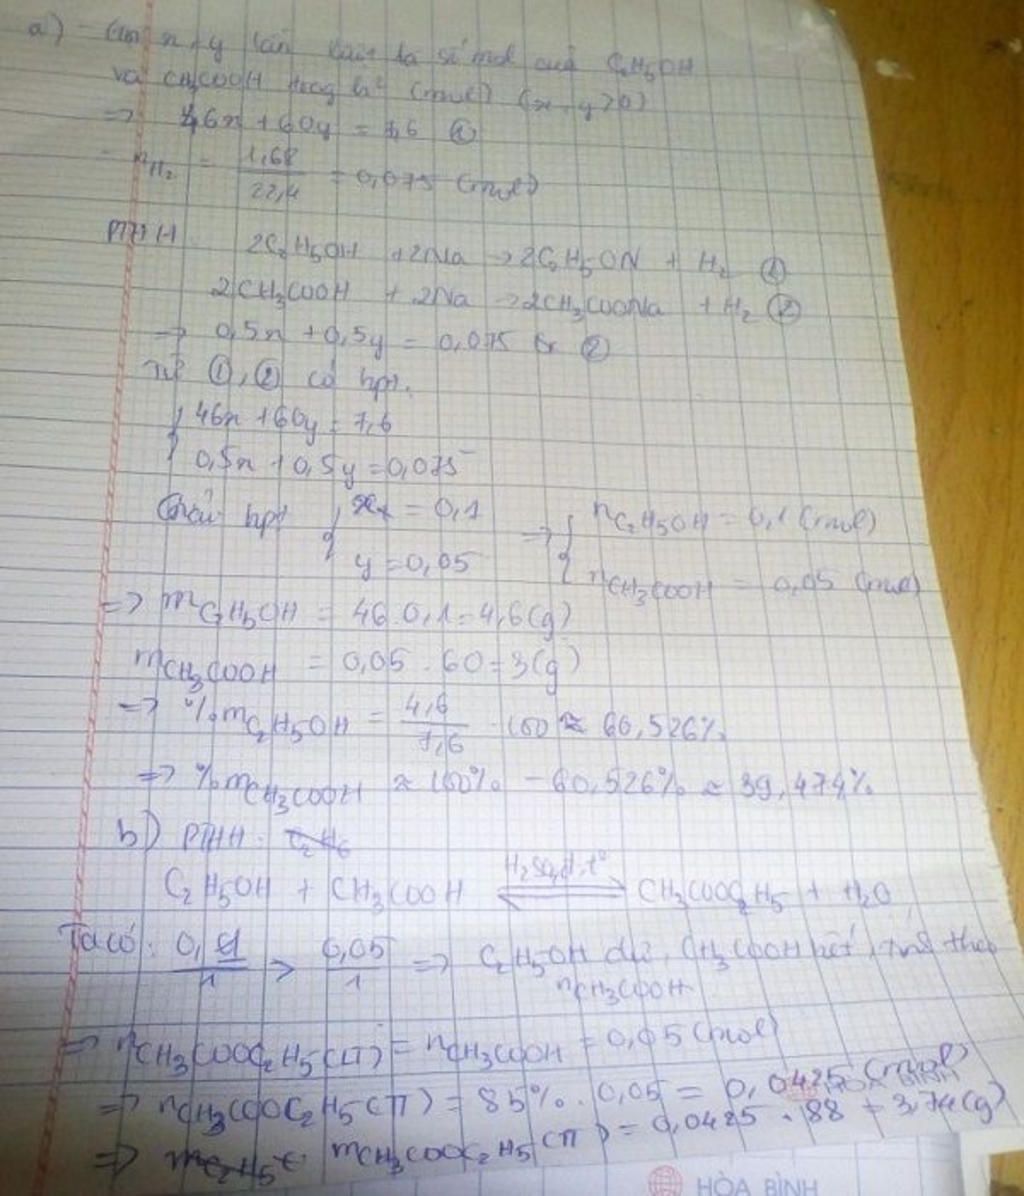 a) - Gọi x, y lần lượt là số mol của C₂H₅OH
và CH₃COOH trong h² (mol) (x, y > 0)
=> 46x + 60y = 7,6 ①
- nH₂ = 1,68 / 22,4 = 0,075 (mol)
PTHH 2C₂H₅OH + 2Na → 2C₂H₅ON + H₂ ①
2CH₃COOH + 2Na → 2CH₃COONa + H₂ ②
=> 0,5x + 0,5y = 0,075 ②
Từ ①, ② có hpt.
{ 46x + 60y = 7,6
0,5x + 0,5y = 0,075
Giải hpt { x = 0,1 => { nC₂H₅OH = 0,1 (mol)
y = 0,05 nCH₃COOH = 0,05 (mol)
=> mC₂H₅OH = 46.0,1 = 4,6 (g)
mCH₃COOH = 0,05 . 60 = 3 (g)
=> %mC₂H₅OH = 4,6 / 7,6 . 100 ≈ 60,526%
=> %mCH₃COOH ≈ 100% - 60,526% ≈ 39,474%
b) PTHH:
C₂H₅OH + CH₃COOH ⇌ H₂SO₄đ, t° CH₃COOC₂H₅ + H₂O
Ta có: 0,1 / 1 > 0,05 / 1 => C₂H₅OH dư, CH₃COOH hết, tính theo
nCH₃COOH
=> nCH₃COOC₂H₅(LT) = nCH₃COOH = 0,05 (mol)
=> nCH₃COOC₂H₅(TT) = 85% . 0,05 = 0,0425 (mol)
=> mCH₃COOC₂H₅(TT) = 0,0425 . 88 = 3,74 (g)
HÒA BÌNH